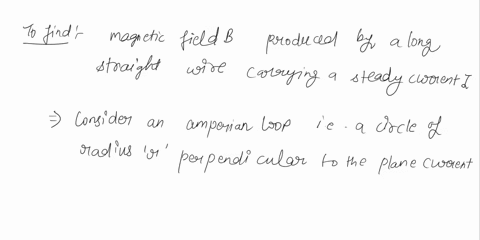 To find :- magnetic field B produced by a long
straight wire carrying a steady current I
⇒ Consider an amperian loop i.e. a circle of
radius 'r' perpendicular to the plane current